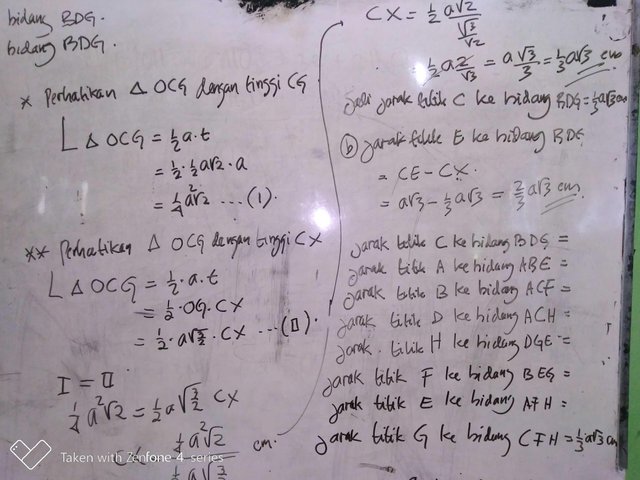 bidang BDG.
bidang BDG.
* Perhatikan △ OCG dengan tinggi CG
L △ OCG = ½ a . t
= ½ . ½ a√2 . a
= ¼ a²√2 ... (1).
** Perhatikan △ OCG dengan tinggi CX
L △ OCG = ½ . a . t
= ½ . OG . CX
= ½ . a√(3/2) . CX ... (II).
I = II
¼ a²√2 = ½ a√(3/2) CX
¼ a²√2 cm.
½ a√(3/2)
CX = ½ a√2 / (√3/√2)
= ½ a 2/√3 = a √3/3 = ⅓ a√3 cm
Jadi jarak titik C ke bidang BDG = ⅓ a√3 cm
(b) Jarak titik E ke bidang BDG
= CE - CX.
= a√3 - ⅓ a√3 = ⅔ a√3 cm
Jarak titik C ke bidang BDG =
Jarak titik A ke bidang ABE =
Jarak titik B ke bidang ACF =
Jarak titik D ke bidang ACH =
Jarak titik H ke bidang DGE =
Jarak titik F ke bidang BEG =
Jarak titik E ke bidang AFH =
Jarak titik G ke bidang CFH = ⅓ a√3 cm
Taken with Zenfone 4 series